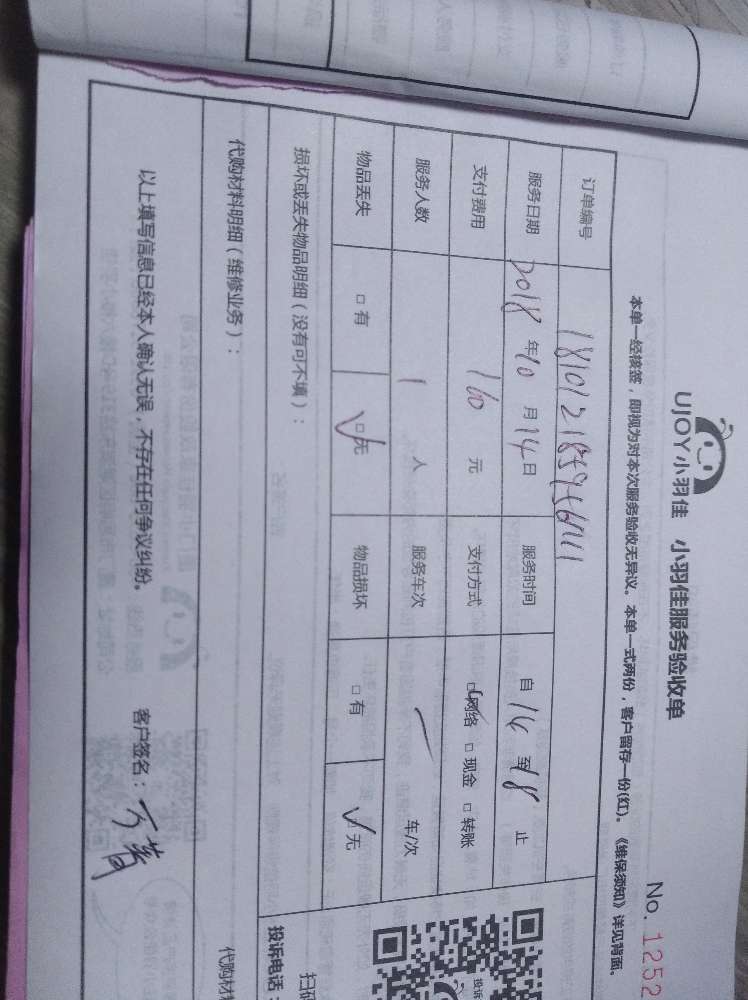 UJOY小羽佳 小羽佳服务验收单
No. 1252
本单一经核签，即视为对本次服务验收无异议。本单一式两份，客户留存一份(红)。《维保须知》详见背面。
订单编号
服务日期 2018年10月14日 服务时间 自14至18止
支付费用 160元 支付方式 □网络 □现金 □转账
服务人数 1人 服务车次 车/次
物品丢失 □有 □无 物品损坏 □有 □无
损坏或丢失物品明细（没有可不填）：
代购材料明细（维修业务）：
代购材
以上填写信息已经本人确认无误，不存在任何争议纠纷。 客户签名：
投诉
扫
投诉电话：